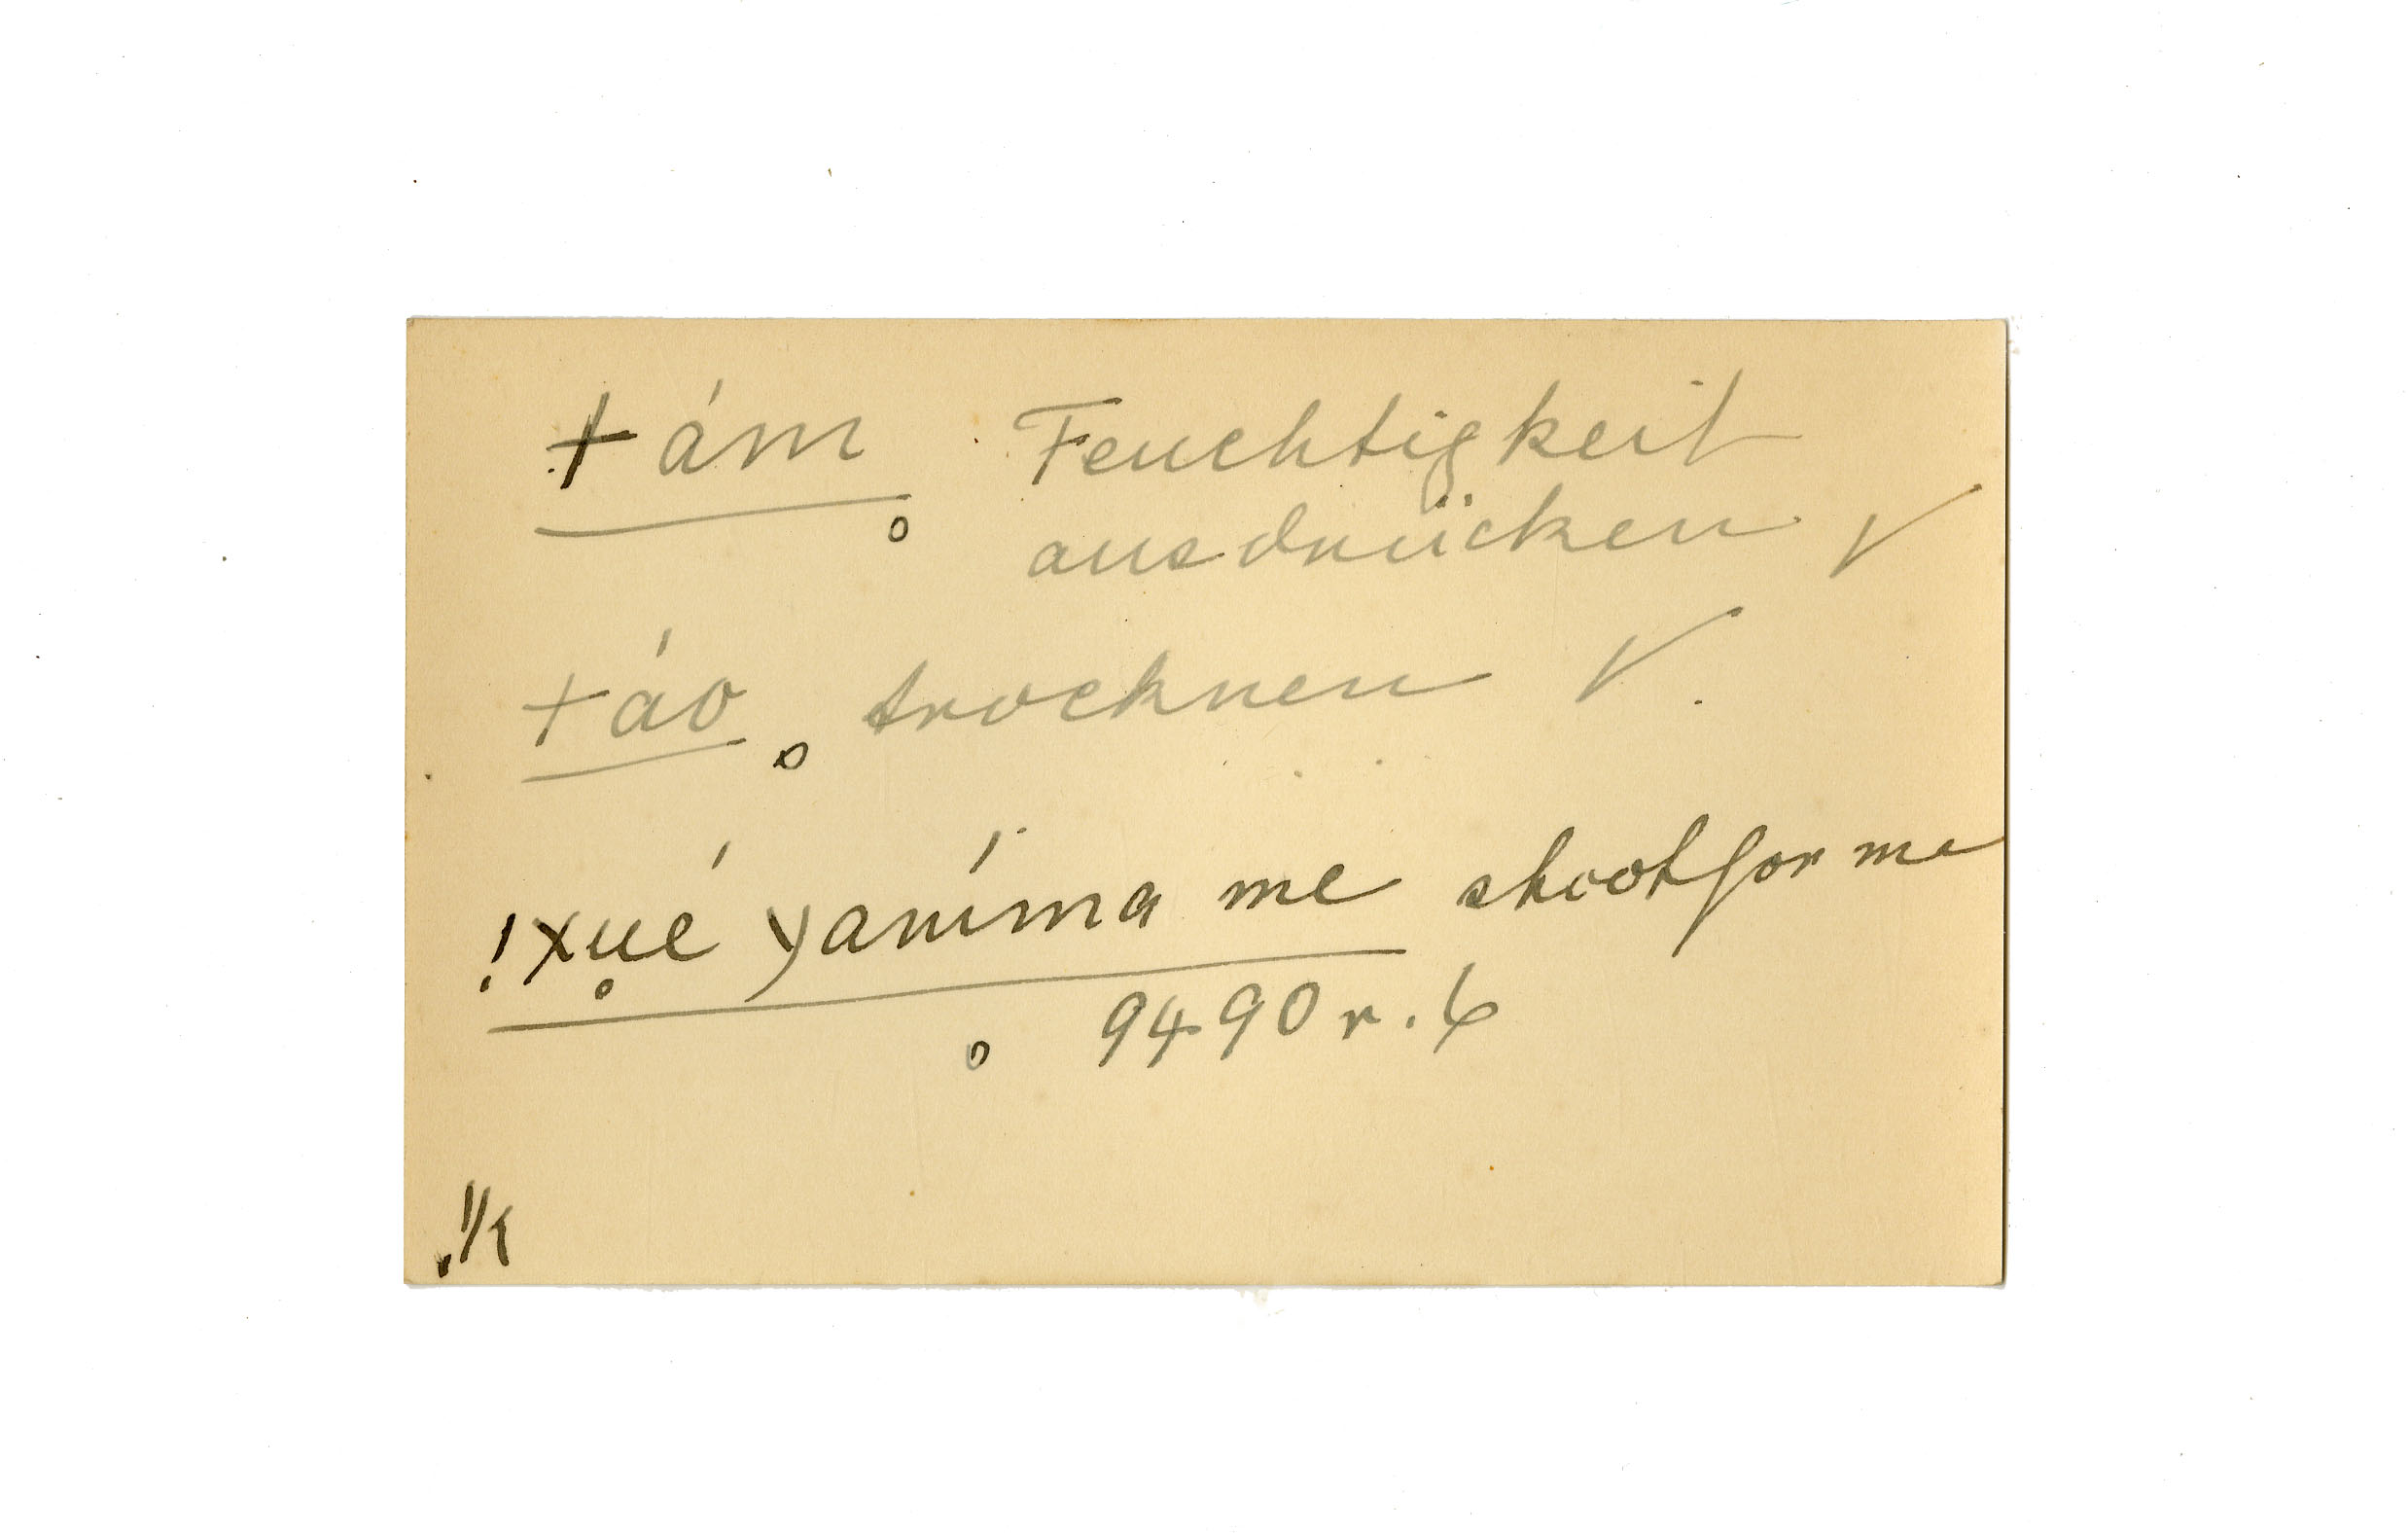 ǂám Feuchtigkeit
ausdrücken √
ǂáo trocknen √
!xu̥é yaníma me shoot for me
9490 r. 6